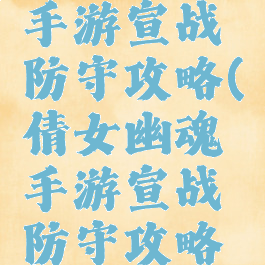 手游宣战
防守攻略(
倩女幽魂
手游宣战
防守攻略